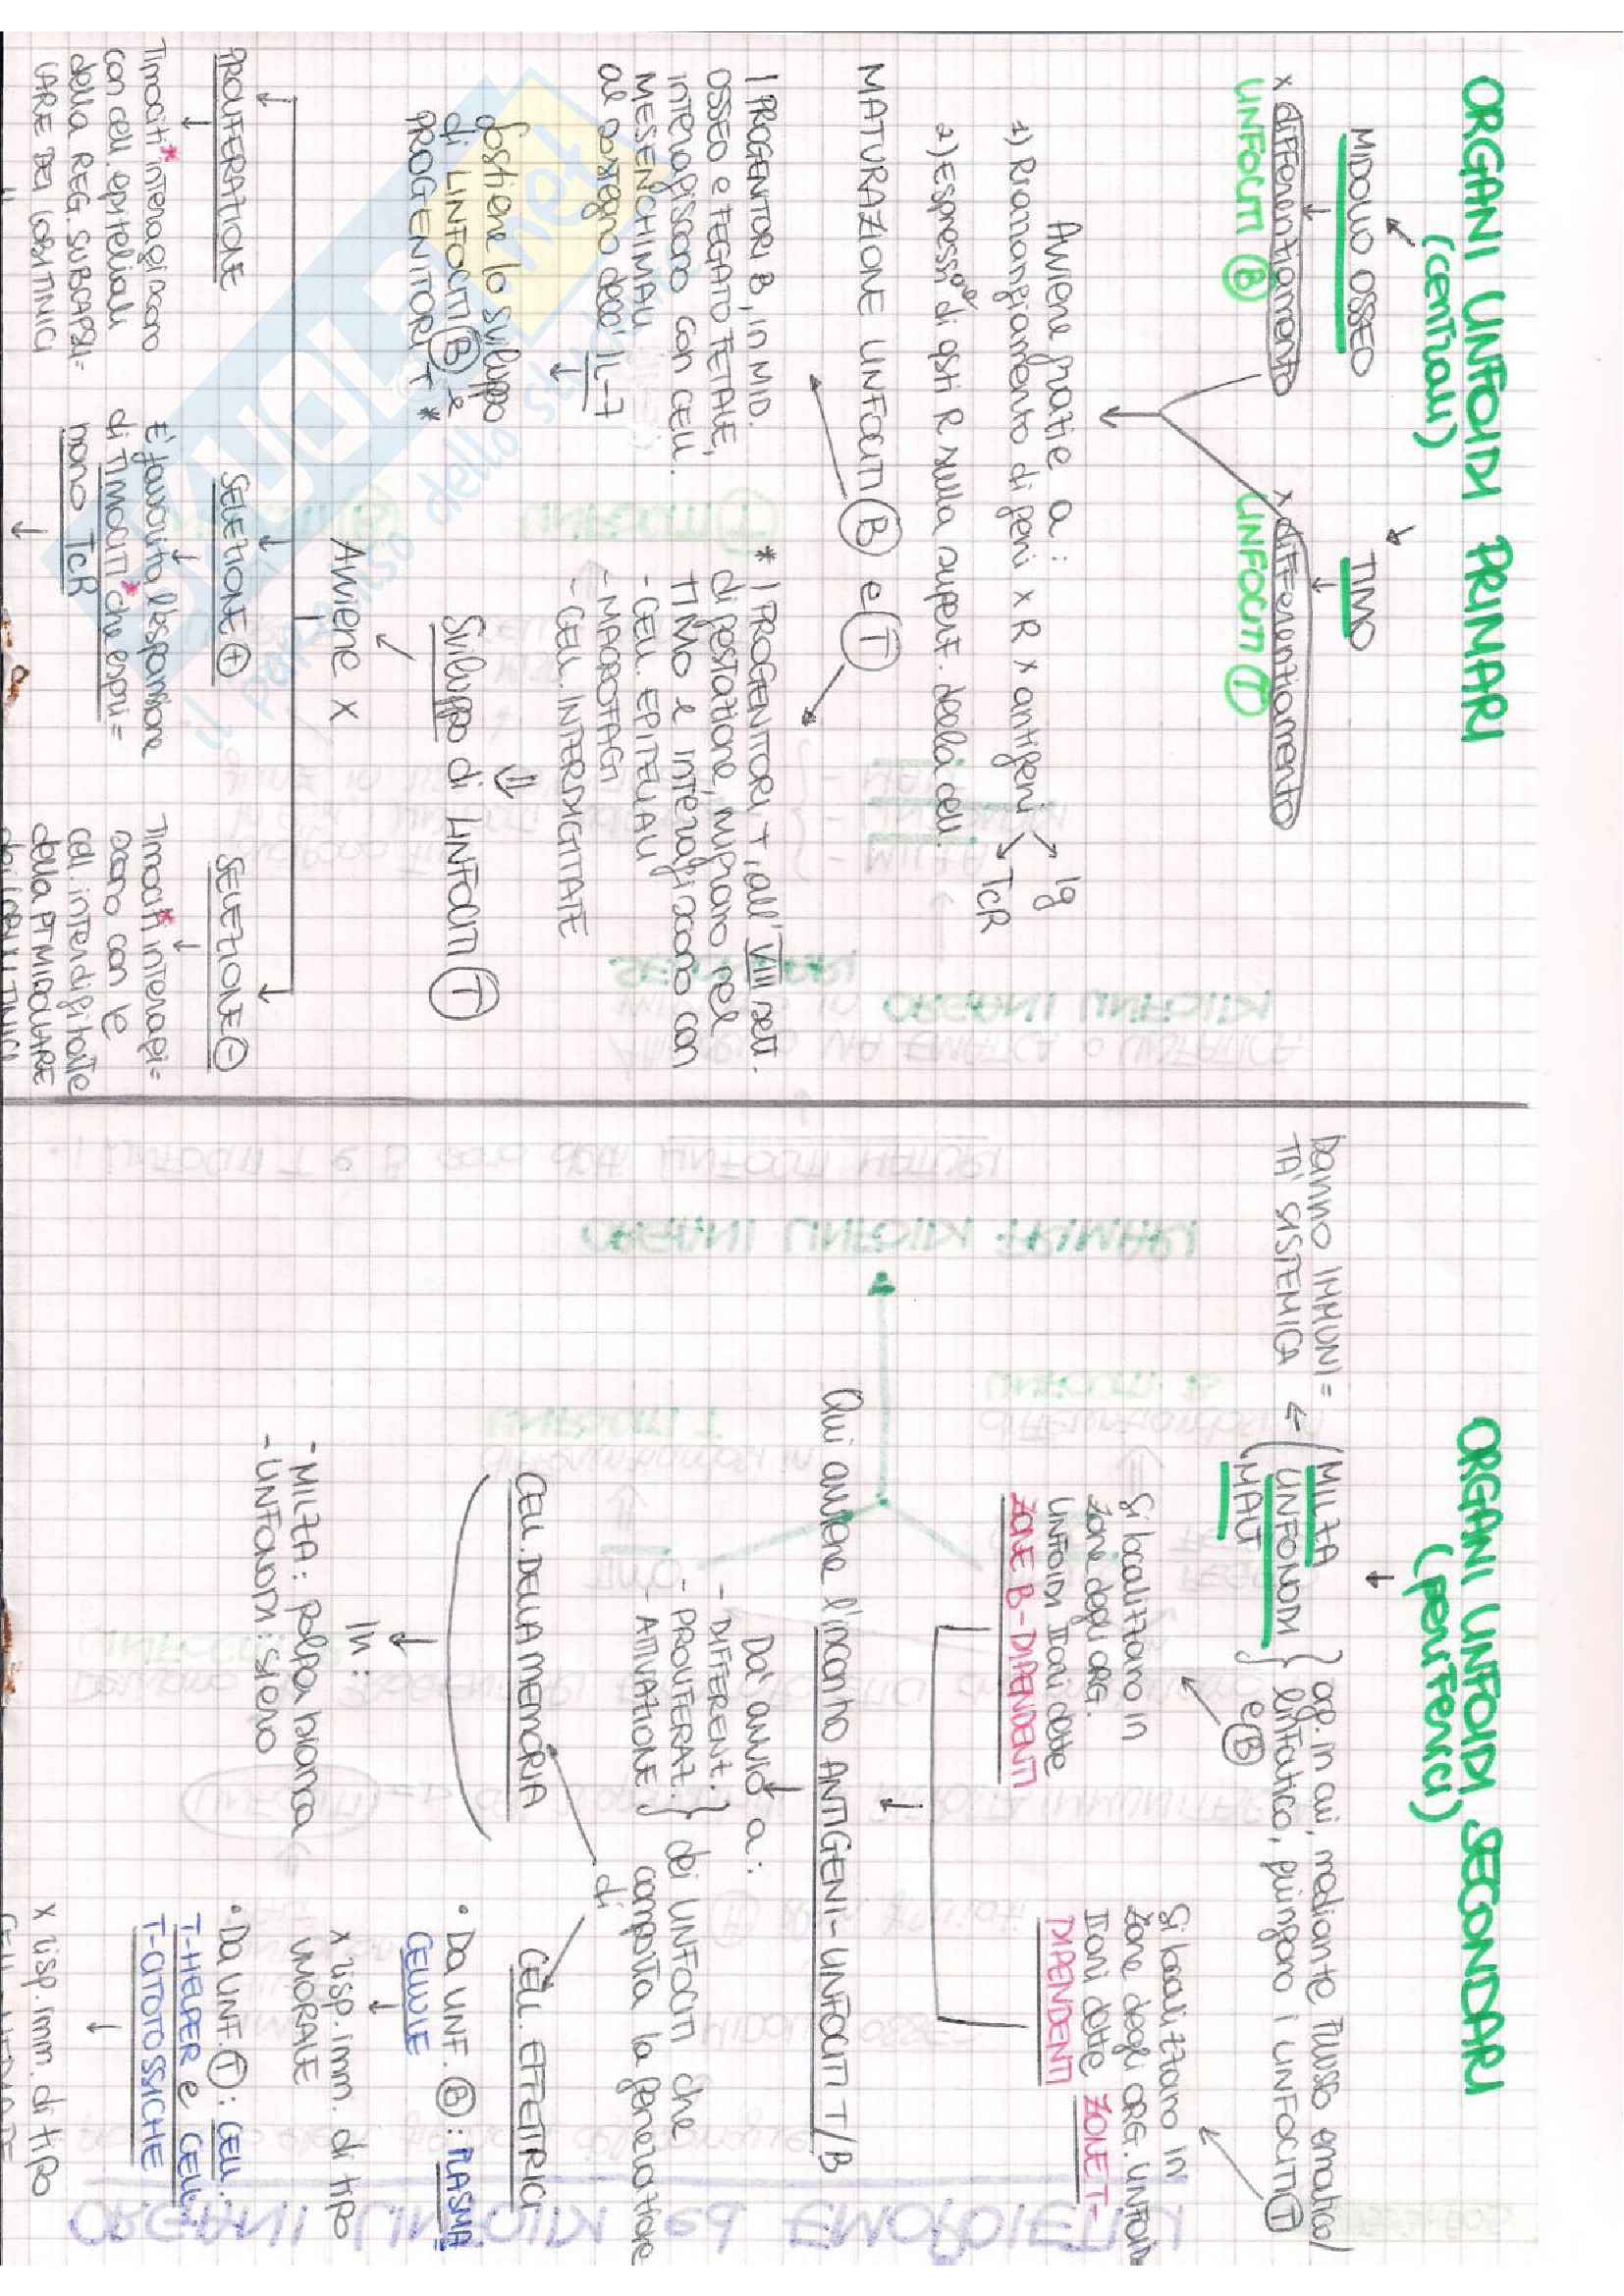 ORGANI LINFOIDI PRIMARI
(centrali)
MIDOLLO OSSEO
x differentiamento
LINFOCITI B
TIMO
x differentiamento
LINFOCITI T
Avviene grazie a:
1) Riarrangiamento di geni x R x antigeni
Ig
TcR
2) Espress.ne di qsti R sulla superf. della cell.
MATURAZIONE LINFOCITI B e T
I PROGENITORI B, in MID.
OSSEO e FEGATO FETALE,
interagiscono con CELL.
MESENCHIMALI
al sostegno dell' IL-7
Sostiene lo sviluppo
di LINFOCITI B e
PROGENITORI T *
* I PROGENITORI T, all' VIII sett.
di gestazione, migrano nel
TIMO e interagiscono con
- CELL. EPITELIALI
- MACROFAGI
- CELL. INTERDIGITATE
Sviluppo di LINFOCITI T
Avviene x
PROLIFERAZIONE
Timociti* interagiscono
con cell. epiteliali
della REG. SUBCAPSU=
LARE DEI LOBI TIMICI
SELEZIONE +
E' favorita l'espansione
di TIMOCITI* che espri=
mono TcR
SELEZIONE -
Timociti* interagi=
scono con le
cell. interdigitate
della PT MIDOLLARE
dei LOBULI TIMICI
ORGANI LINFOIDI SECONDARI
(periferici)
Danno IMMUNI=
TA' SISTEMICA
MILZA
LINFONODI
MALT
og. in cui, mediante flusso ematico/
linfatico, giungono i LINFOCITI T
e B
Si localizzano in
zone degli ORG.
LINFOIDI II.ari dette
ZONE B-DIPENDENTI
Si localizzano in
zone degli ORG. LINFOIDI
II.ari dette ZONE T-
DIPENDENTI
Qui avviene l'incontro ANTIGENI-LINFOCITI T/B
Da' avvio a:
- DIFFERENT.
- PROLIFERAZ.
- ATTIVAZIONE
dei LINFOCITI che
comporta la generazione
di
CELL. DELLA MEMORIA
In:
- MILZA: polpa bianca
- LINFONODI: siero
CELL. EFFETTRICI
• Da LINF. B: PLASMA
CELLULE
x risp. imm. di tipo
UMORALE
• Da LINF. T: CELL.
T-HELPER e CELL.
T-CITOTOSSICHE
x risp. imm. di tipo
ORGANI LINFOIDI ed EMOPOIETICI
SKUOLA.net
il paradiso dello studente